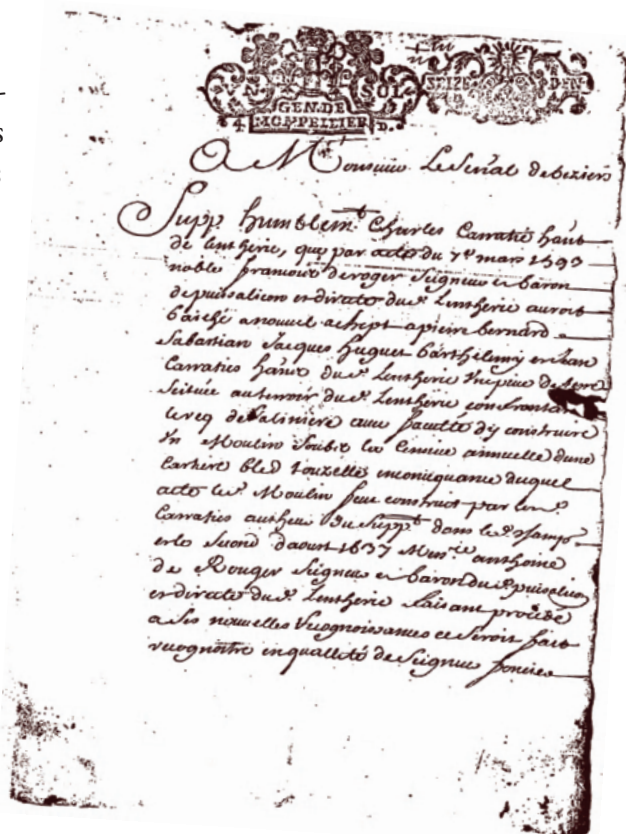 VN SOL
SEIZE DEN
GEN. DE
4. MONPELLIER D.
A Monsieur Le Senal de beziers
Supp humblemt Charles Carratié habt
de lentherie, que par acte du 7e mars 1593
noble framcois de roger Seigneur et baron
de puissalicon et directe du st Lentherie auroit
baisée a nouvel achept a pierre bernard
Sabastian Jacques huguet barthelemy et Jean
Carraties habts du st Lentherie Une piece de terre
Scituée au terroir du st Lentherie confrontant
le req de Salimiere avec faculté dy construire
Vn Moulin soubz la Censive annuelle dune
Cartiere bled touzelle en consequance duquel
acte le st Moulin feut construit par les
Carraties autheurs du suppt dans le st champ
et le second daoust 1637 Messire anthoine
de Rouger Seigneur et baron du st puisalicon
et directe du st Lentherie faisant proceder
a ses nouvelles recognoissances se seroit fait
recognoitre en quallité de Seigneur foncier